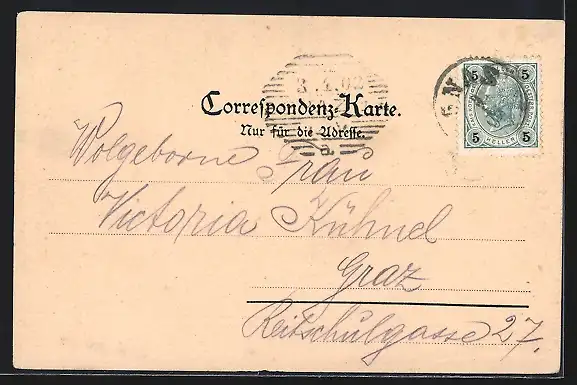 3.4.02
GNAS
5 5
5 HELLER 5
Correspondenz-Karte.
Nur für die Adresse.
a
Wolgeborne Frau
Victoria Kühnel
Graz
Reitschulgasse 27.